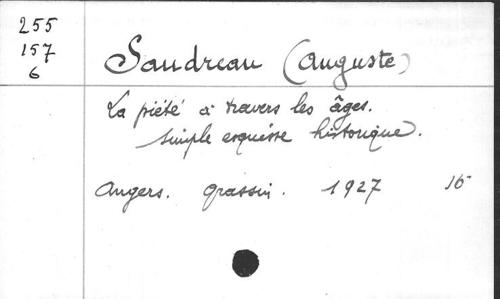 255
157
6
Saudreau (Auguste)
La piété à travers les âges.
simple esquisse historique.
Angers. Grassin. 1927 16